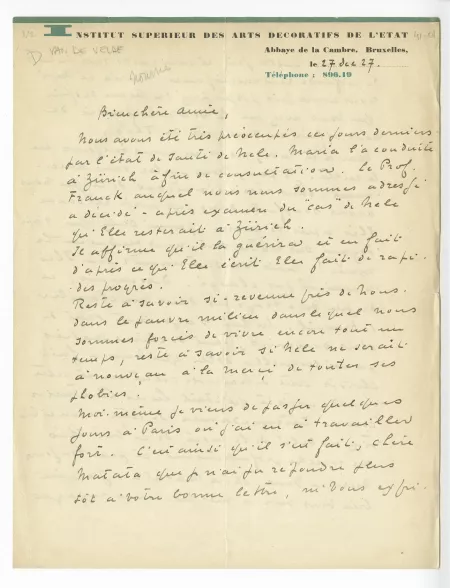 INSTITUT SUPERIEUR DES ARTS DECORATIFS DE L'ETAT
Abbaye de la Cambre. Bruxelles,
VAN DE VELDE
le 27 dec 27.
Téléphone : 896.19
Bien chère amie,
Nous avons été très préoccupés ces jours derniers
par l'état de santé de Nele. Maria l'a conduite
à Zürich à fin de consultation. Le Prof.
Franck auquel nous nous sommes adressé
a décidé - après examen du "cas" de Nele
qu'Elle resterait à Zürich.
Je affirme qu'il la guérira et en fait
d'après ce qu'Elle écrit Elle fait de rapi-
des progrès.
Reste à savoir si - revenue près de nous.
dans le pauvre milieu dans lequel nous
sommes forcés de vivre encore tout un
temps, reste à savoir si Nele ne serait
à nouveau à la merci de toutes ses
phobies.
Moi-même je viens de passer quelques
jours à Paris où j'ai eu à travailler
fort. C'est ainsi qu'il s'est fait, chère
Matata que je n'ai pu répondre plus
tôt à votre bonne lettre, ni vous expri-